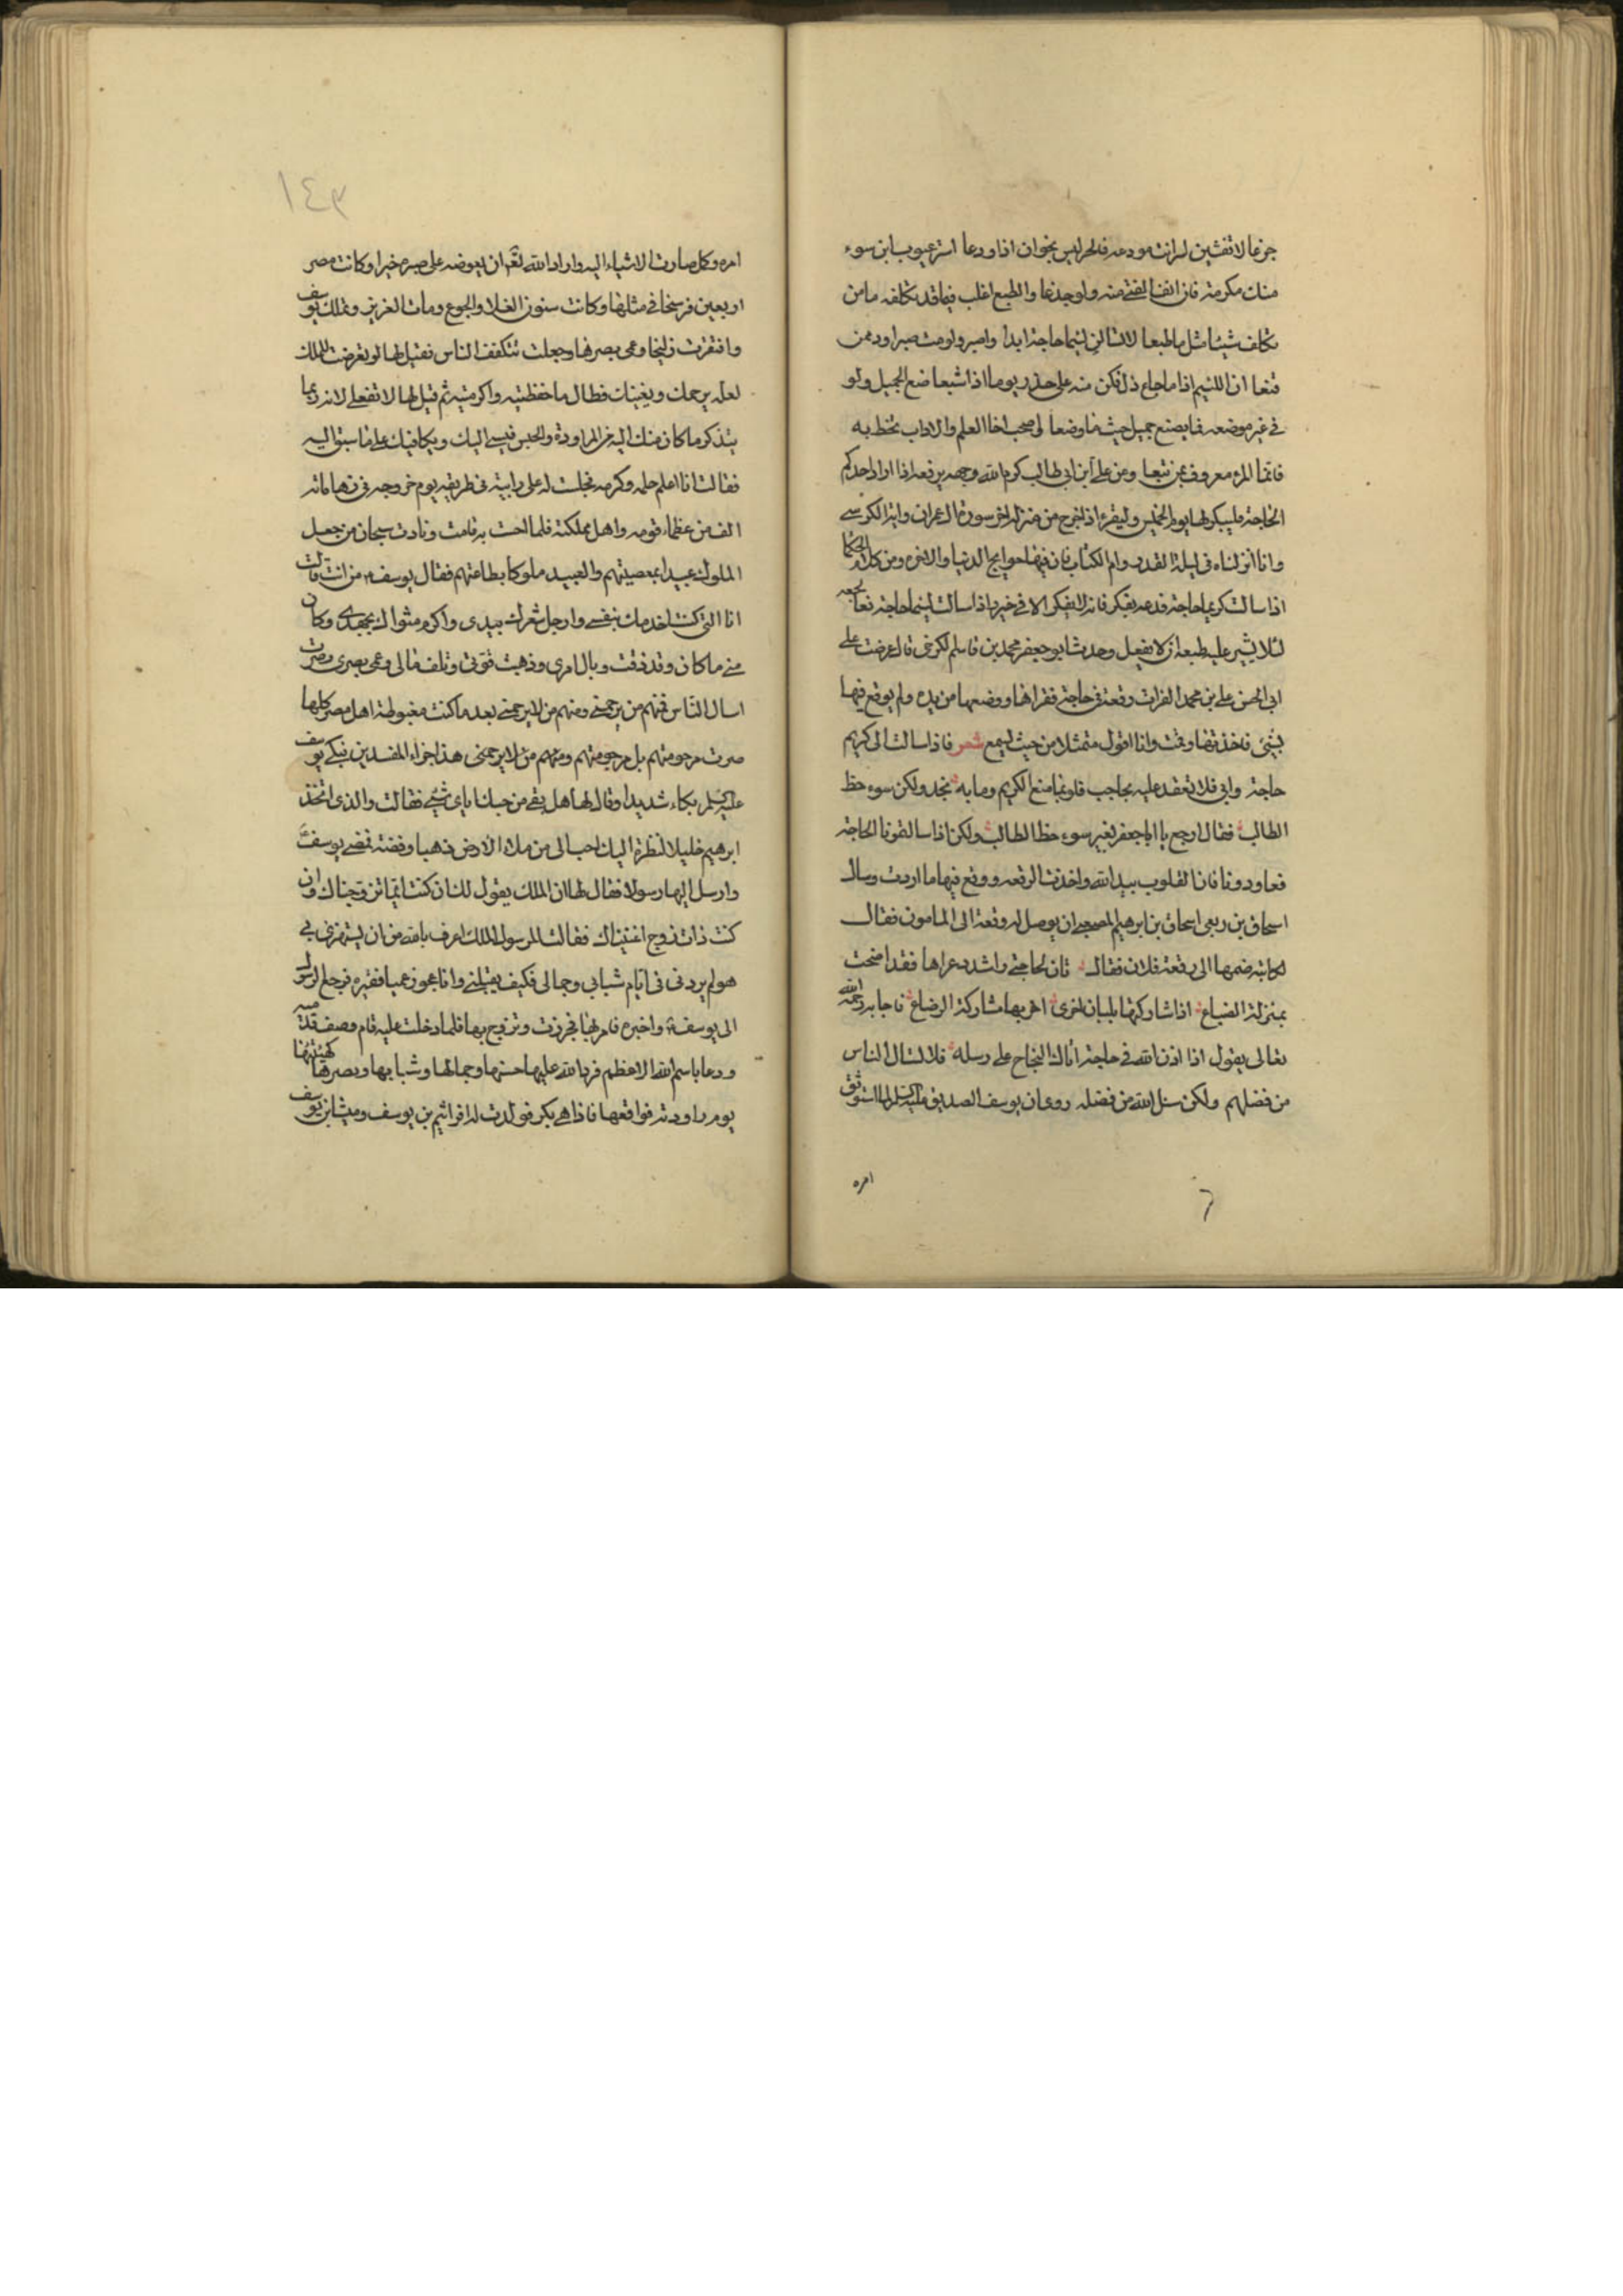 جزعا لا تفشين لمرانت مودعه فالحر ليس بخوان اذا ودعا استر عيوب ابن سوء
منك مكرمة فان انف الفتى منه ولو جدعا والطبع اغلب فيما قد تكلفه ما من
تكلف شيئا مثل ما طبعا لا تسالن لئيما حاجة ابدا واصبر ولو مت صبرا ودم من
قنعا ان اللئيم اذا ما جاع ذل فكن منه على حذر يوما اذا شبعا ضع الجميل ولو
في غير موضعه فما يضيع جميل حيث ما وضعا لا صحب اخا العلم والاداب تحظ به
فانما المرء معروف بمن تبعا وعن علي ابن ابي طالب كرم الله وجهه يرفعه اذا اراد احدكم
الحاجة فليبكر لها يوم الخميس وليقرء اذا خرج من منزله اخر سورة ال عمران واية الكرسي
وانا انزلناه في ليلة القدر وام الكتاب فان فيها حوايج الدنيا والاخره ومن كلام الحكما
اذا سالت كريما حاجة فدعه يفكر فانه لا يفكر الا في خير واذا سالت لئيما حاجة فعاجله
لئلا يشير عليه طبعه ان لا يفعل وحدث ابو جعفر محمد بن قاسم الكرخي قال عرضت على
ابي الحسن علي بن محمد الفرات رقعة في حاجة فقراها ووضعها من يده ولم يوقع فيها
بشئ فاخذتها وقمت وانا اقول متمثلا من حيث يسمع شعر فاذا سالت الى كريم
حاجة وابى فلا تعقد عليه بحاجب فلربما منع الكريم وما به بخل ولكن سوء حظ
الطالب فقال ارجع يا ابا جعفر بغير سوء حظ الطالب ولكن اذا سالتمونا الحاجة
فعاودونا فان القلوب بيد الله واخذت الرقعه ووقع فيها ما اردت وسال
اسحاق بن ربعي اسحاق بن ابرهيم المصعبي ان يوصل له رقعة الى المامون فقال
لكاتبه ضمها الى رقعة فلان فقال تان لحاجتي واشدد عراها فقد اضحت
بمنزلة الضياع اذا شاركتها بلبان اخرى اضر بها مشاركة الرضاع فاجابه رحمه الله
تعالى يقول اذا اذن الله في حاجة اتاك النجاح على رسله فلا تسال الناس
من فضلهم ولكن سل الله من فضله روى ان يوسف الصديق عليه السلم لما استوثق
امره
٦
١٤٣
امره وكل صارت الاشياء اليه واراد الله تع ان يعوضه على صبره خيرا وكانت مصر
اربعين فرسخا في مثلها وكانت سنون الغلا والجوع ومات العزيز وتملك يوسف
وافتقرت زليخا وعمي بصرها وجعلت تتكفف الناس فقيل لها لو تعرضت للملك
لعله يرحمك ويغيثك فطال ما حفظتيه واكرمتيه ثم قيل لها لا تفعلي لانه ربما
يتذكر ما كان منك اليه من المراودة والحبس فيسئ اليك ويكافيك على ما سبق اليه
فقالت انا اعلم حلمه وكرمه فجلست له على رابية في طريقه يوم خروجه في زها مائه
الف من عظماء قومه واهل مملكته فلما احست به قامت ونادت سبحان من جعل
الملوك عبيدا بمعصيتهم والعبيد ملوكا بطاعتهم فقال يوسف من انت قالت
انا التي كنت اخدمك بنفسي وارجل شعرك بيدي واكرم مثواك بجهدي وكان
مني ما كان وقد ذقت وبال امري وذهبت قوتي وتلف مالي وعمي بصري وصرت
اسال الناس فمنهم من يرحمني ومنهم من لا يرحمني بعد ما كنت مغبوطة اهل مصر كلها
صرت مرحومتهم بل مرحومتهم ومنهم من لا يرحمني هذا جزاء المفسدين فبكى يوسف
عليه السلم بكاء شديدا وقال لها هل بقي من حبك اياي شيئ فقالت والذي اتخذ
ابرهيم خليلا لنظرة اليك احب الي من ملاء الارض ذهبا وفضة فمضى يوسف
وارسل اليها رسولا فقال لها ان الملك يقول لك ان كنت ايما تزوجناك وان
كنت ذات زوج اغنيناك فقالت لرسول الملك اعرف بالله من ان يستهزئ بي
هو لم يردني في ايام شبابي وجمالي فكيف يقبلني وانا عجوز عميا فقيره فرجع الرسول
الى يوسف واخبره فامر بها فجهزت وتزوج بها فلما دخلت عليه قام وصف قدميه
ودعا باسم الله الاعظم فرد الله عليها حسنها وجمالها وشبابها وبصرها كهيئتها
يوم راودته فواقعها فاذا هي بكر فولدت له افراثيم بن يوسف وميشا بن يوسف